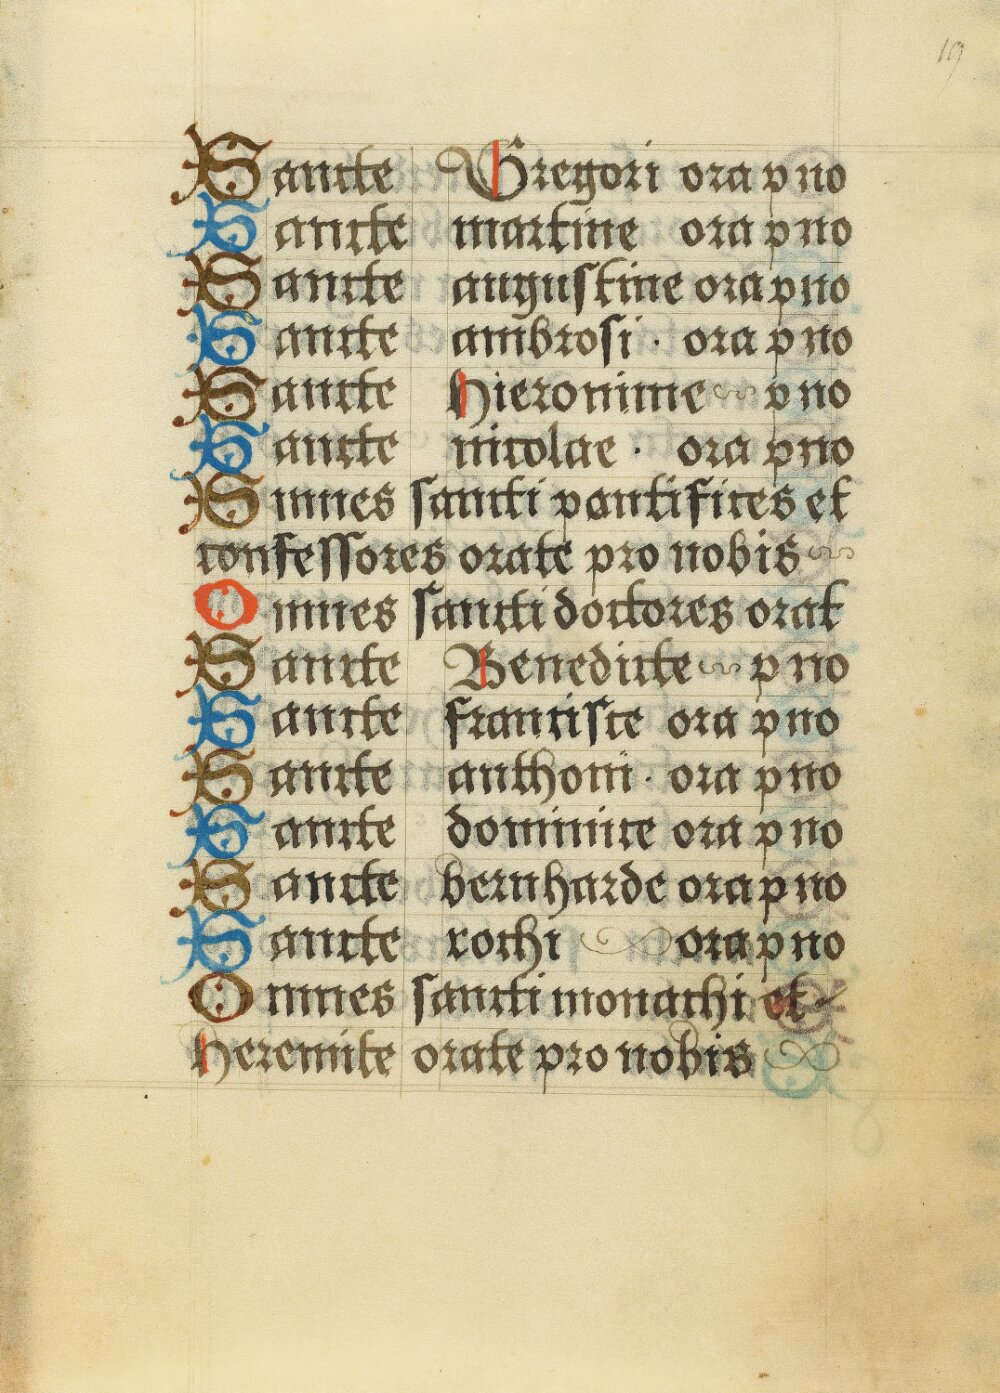 19
Sancte Gregori ora p no
Sancte martine ora p no
Sancte augustine ora p no
Sancte ambrosi · ora p no
Sancte hieronime p no
Sancte nicolae · ora p no
Omnes sancti pontifices et
confessores orate pro nobis
Omnes sancti doctores orat
Sancte Benedicte p no
Sancte francisce ora p no
Sancte anthoni · ora p no
Sancte dominice ora p no
Sancte bernharde ora p no
Sancte rochi ora p no
Omnes sancti monachi et
heremite orate pro nobis